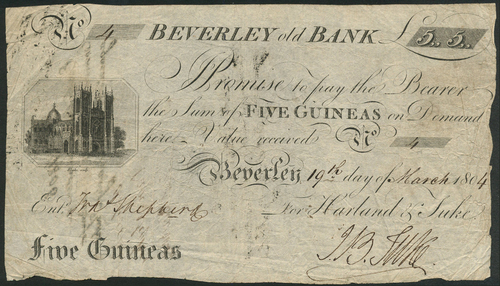 No 4 BEVERLEY old BANK £5..5..
I Promise to pay the Bearer
the Sum of FIVE GUINEAS on Demand
here Value received No 4
Beverley 19th day of March 1804
Entd. Shepherd For Harland & Tuke
Five Guineas